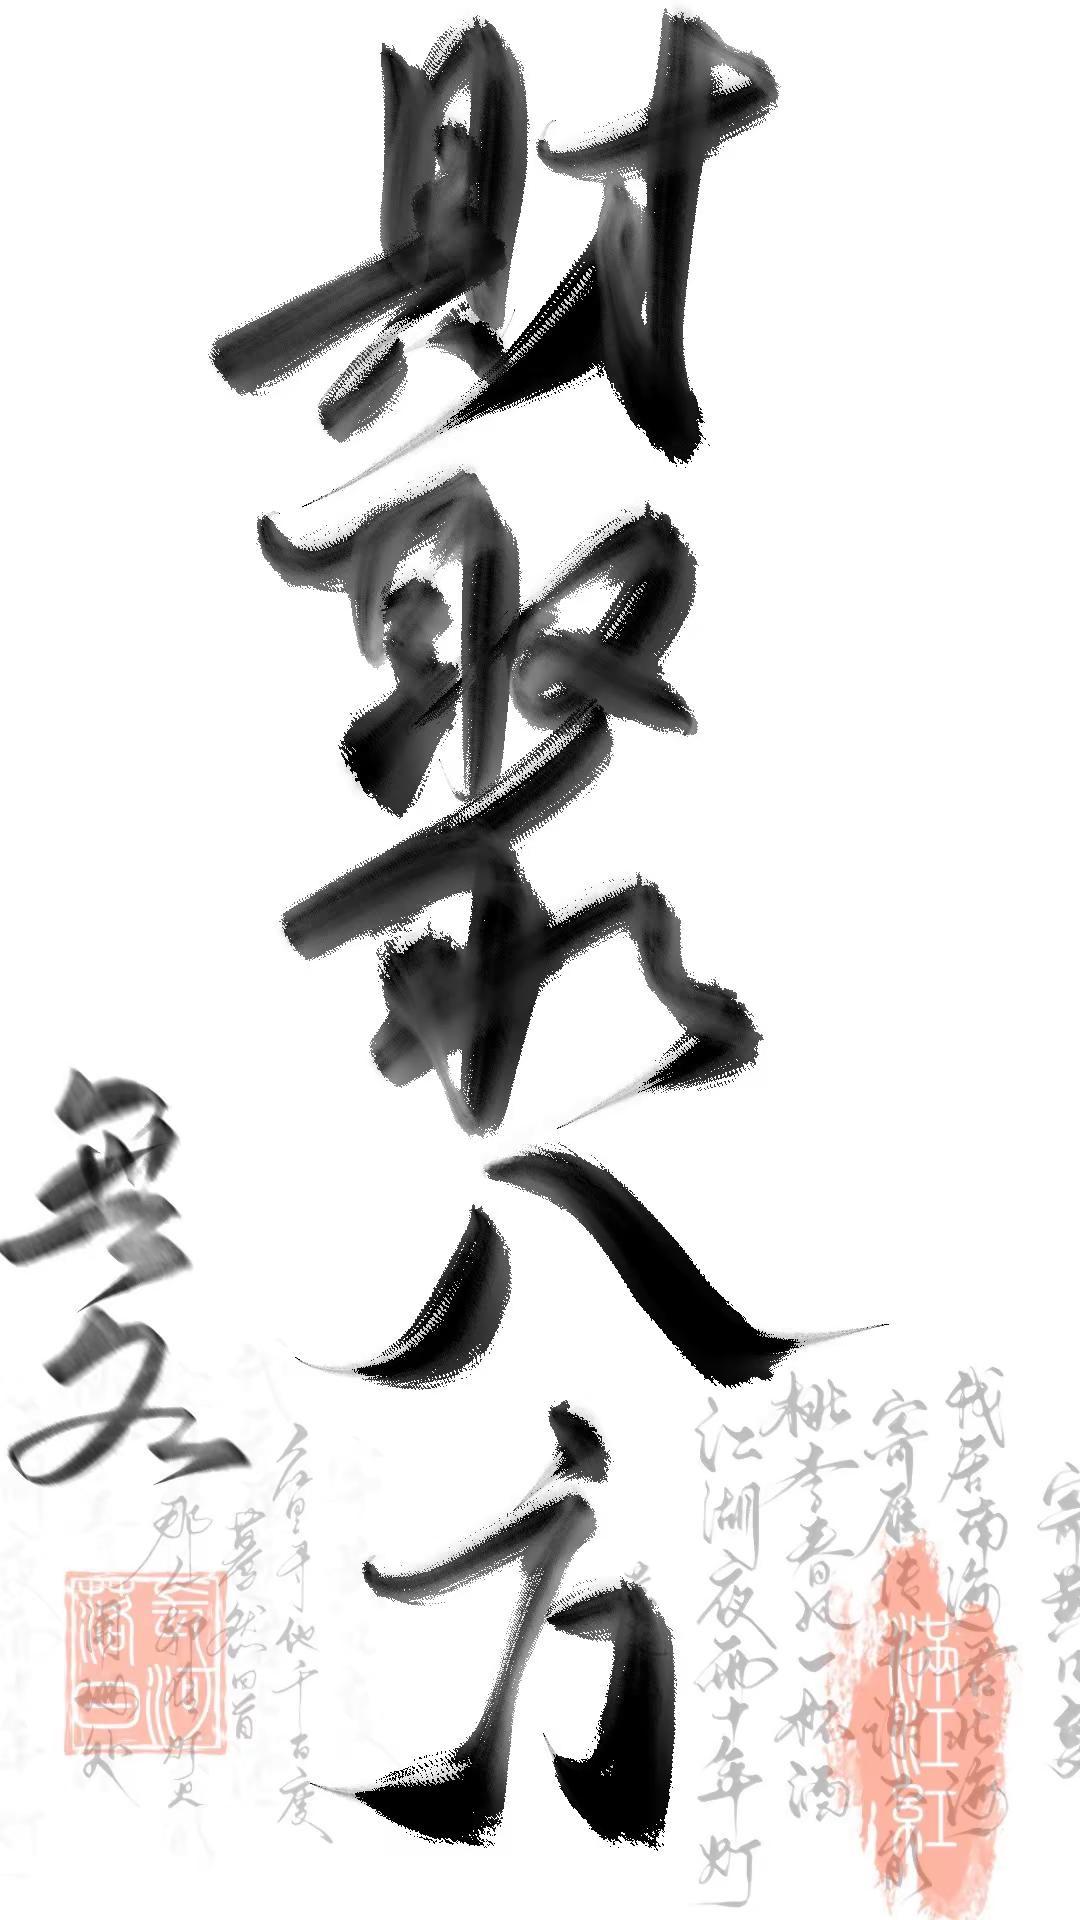 財聚八方
我居南海君北海
寄雁传书谢不能
桃李春风一杯酒
江湖夜雨十年灯
滿江紅
众里寻他千百度
蓦然回首
那人却在灯火
阑珊处